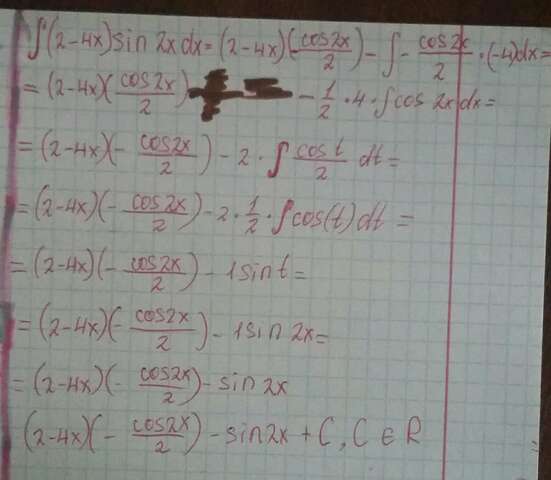 ∫(2-4x)sin 2x dx = (2-4x)(-cos2x/2) - ∫ - cos2x/2 · (-4)dx =
= (2-4x)(cos2x/2) - 1/2 · 4 · ∫cos 2x dx =
= (2-4x)(- cos2x/2) - 2 · ∫ cos t/2 dt =
= (2-4x)(- cos2x/2) - 2 · 1/2 · ∫cos(t)dt =
= (2-4x)(- cos2x/2) - 1 sin t =
= (2-4x)(- cos2x/2) - 1 sin 2x =
= (2-4x)(- cos2x/2) - sin 2x
(2-4x)(- cos2x/2) - sin2x + C, C ∈ R =